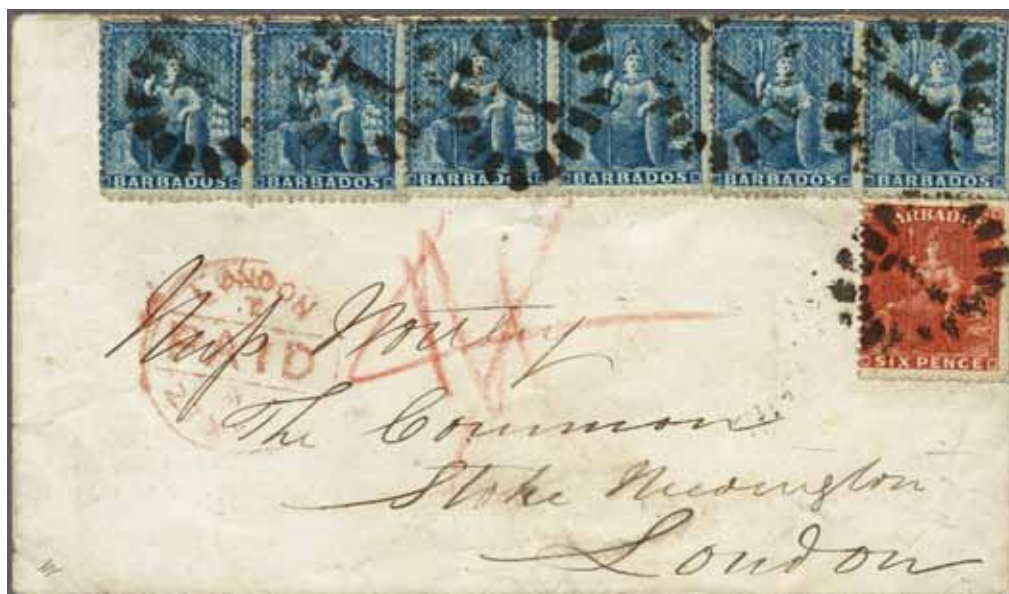 BARBADOS BARBADOS BARBADOS BARBADOS BARBADOS BARBADOS
BARBADOS
SIX PENCE
LONDON
PAID
Miss
The Common
Stoke Newington
London